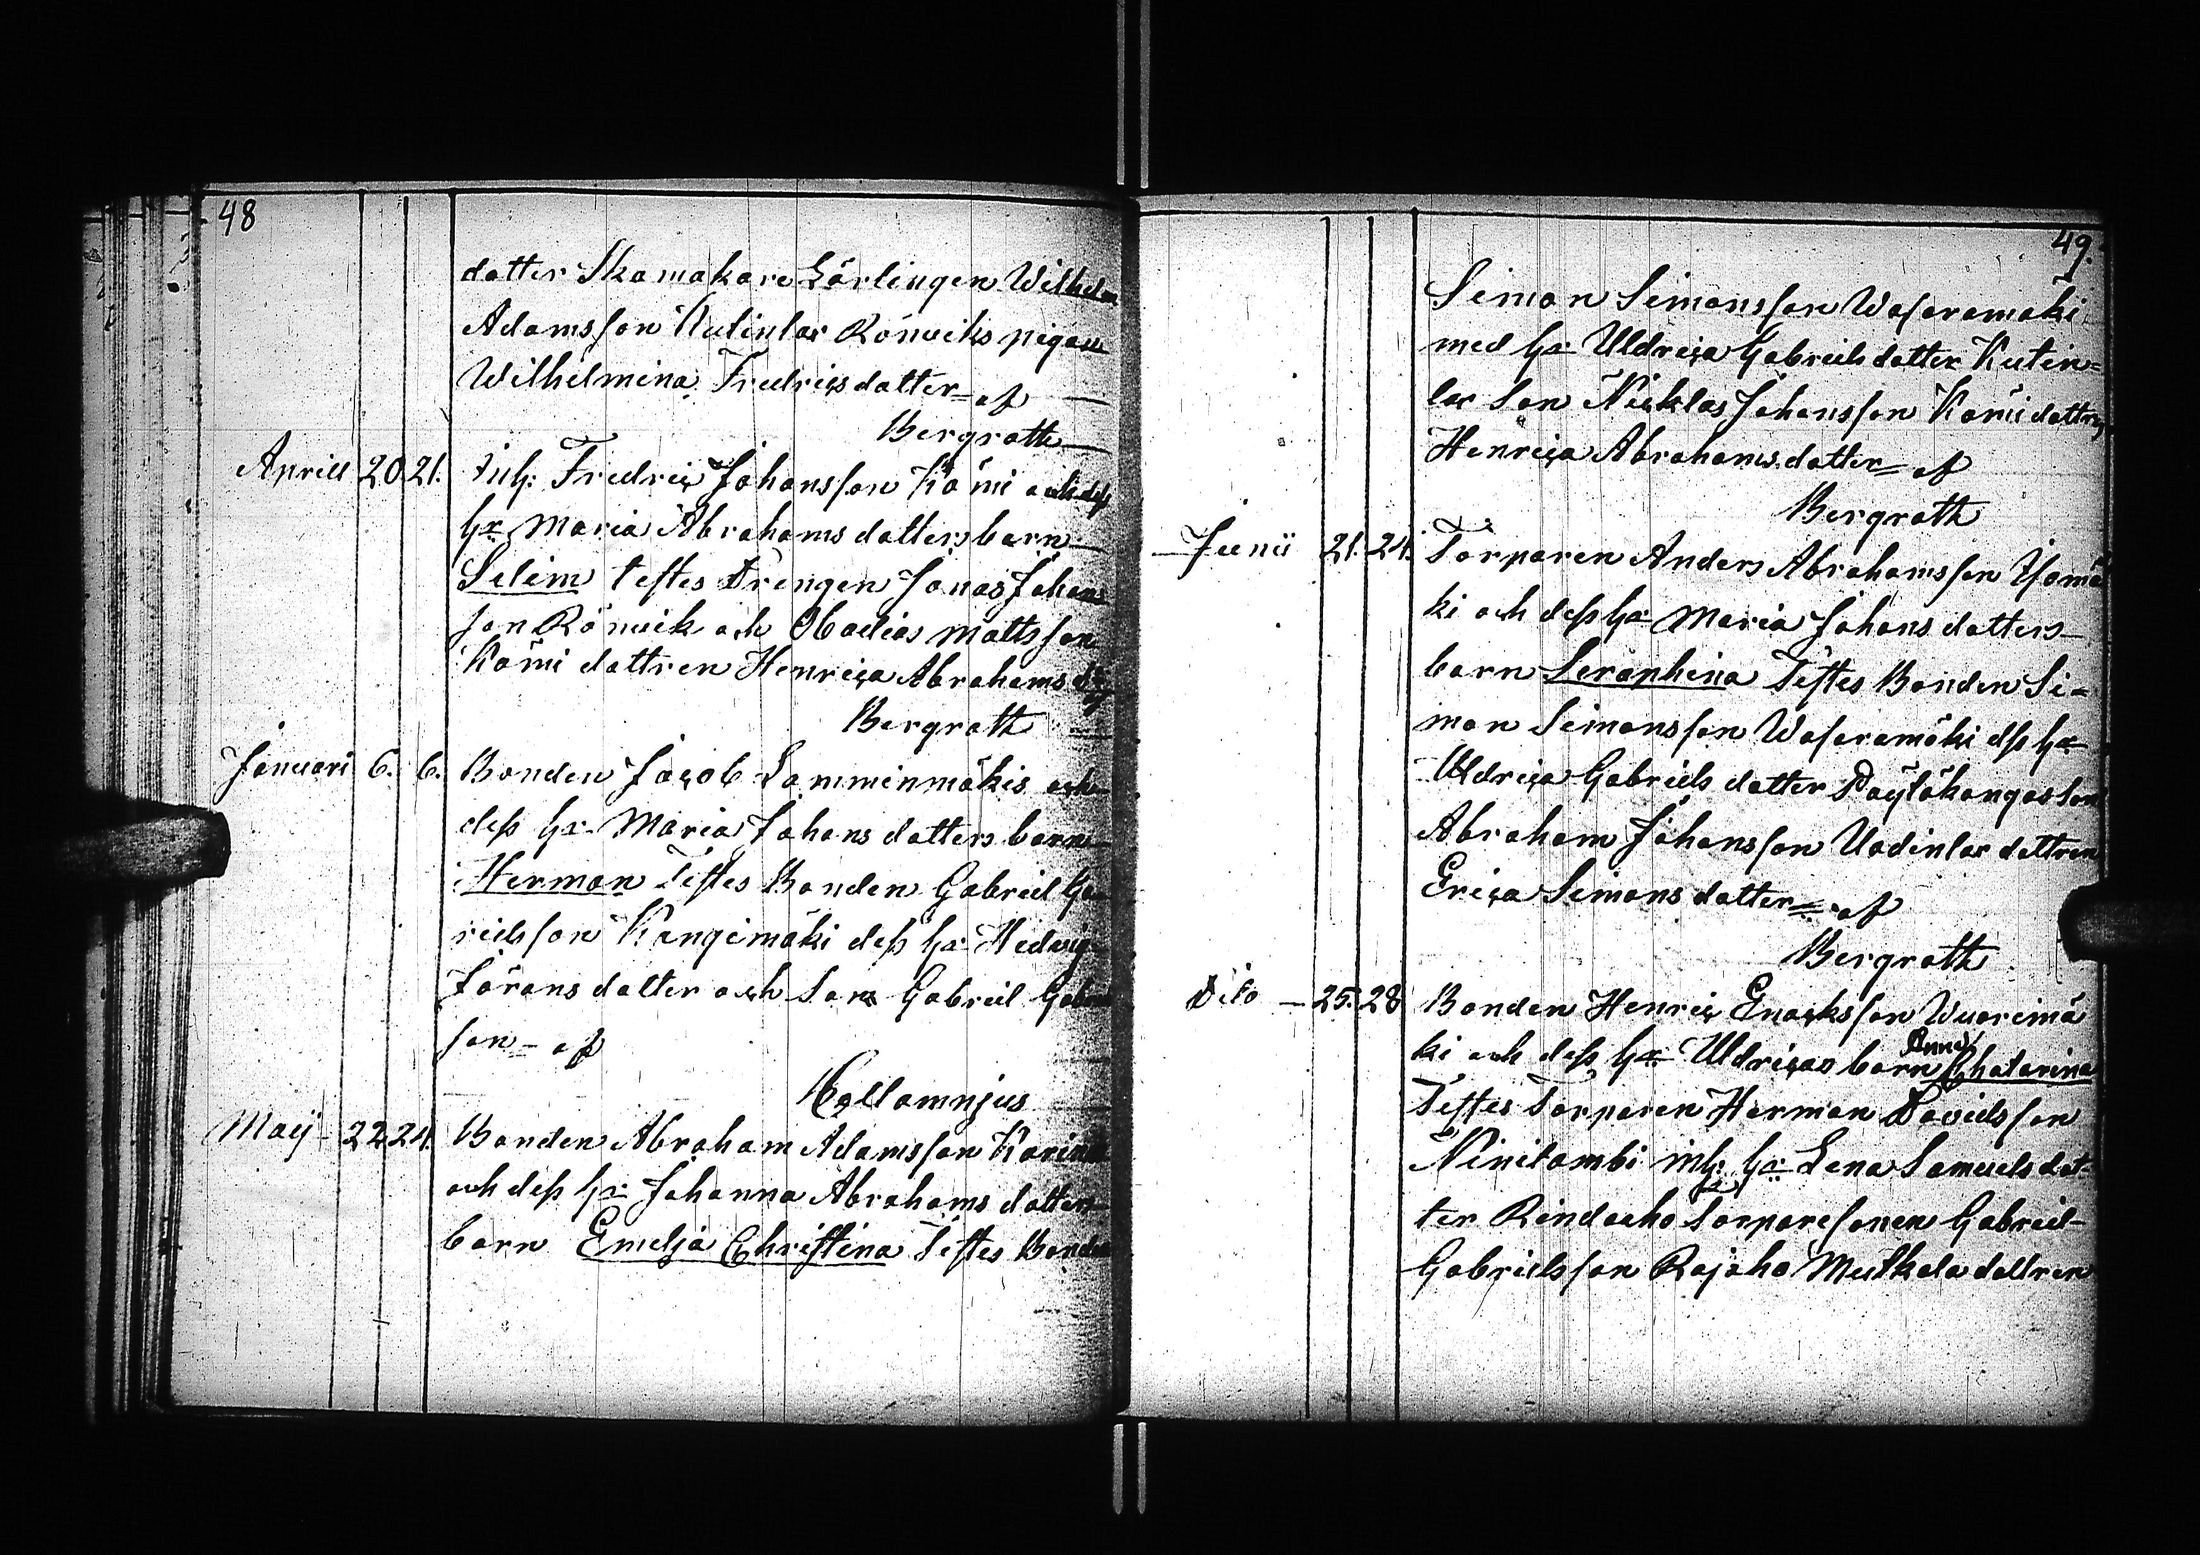 48
datter Skomakare Lärlingen Wilhelm
Adamsson Kutinlax Rönviks pigan
Wilhelmina Fredricsdatter = af
Bergroth
Aprill 20 21. Inh: Fredric Johansson Kömi och deß
Hu Maria Abrahamsdatters barn
Selim testes Drengen Jonas Johans
son Rönvik och Obadias Mattsson
Kömi dottren Henrica Abrahams dr af
Bergroth
Januari 6. 6. Bonden Jacob Lamminmäkis och
deß Hu Maria Johansdatters barn
Herman Testes Bonden Gabriel Ga
rielsson Kangimäki deß Hu Hedvig
Jöransdatter och Son Gabriel Gabriel
son = af
Mallamnjus
Maij - 22 24. Bonden Abraham Adamsson
och deß Hu Johanna Abrahams datters
barn Emelja Christina Testes Bonden
49.
Simon Simonsson Wasaramäki
med Hu Uldrica Gabrielsdatter Kutin=
lax Son Nicklas Johansson Kömi dattren
Henrica Abrahamsdatter = af
Bergroth
Junii 21. 24. Torparen Anders Abrahamsson Isomä
ki och deß Hu Maria Johansdatters
barn Seraphina Testes Bonden Si=
mon Simonsson Wasaramäki deß Hu
Uldrica Gabriels datter Pöytäkangas Son
Abraham Johansson Uodinlax dattren
Erica Simonsdatter = af
Bergroth
Dito - 25. 28 Bonden Henric Enacksson Wuorimä
ki och deß Hu Uldricas barn Anna Chatarina
Testes Torparen Herman Davidsson
Ninilambi inh: Hu Lena Samuels dat-
ter Rindaeho Torparesonen Gabriel
Gabrielsson Rajaho Mutkala dattren